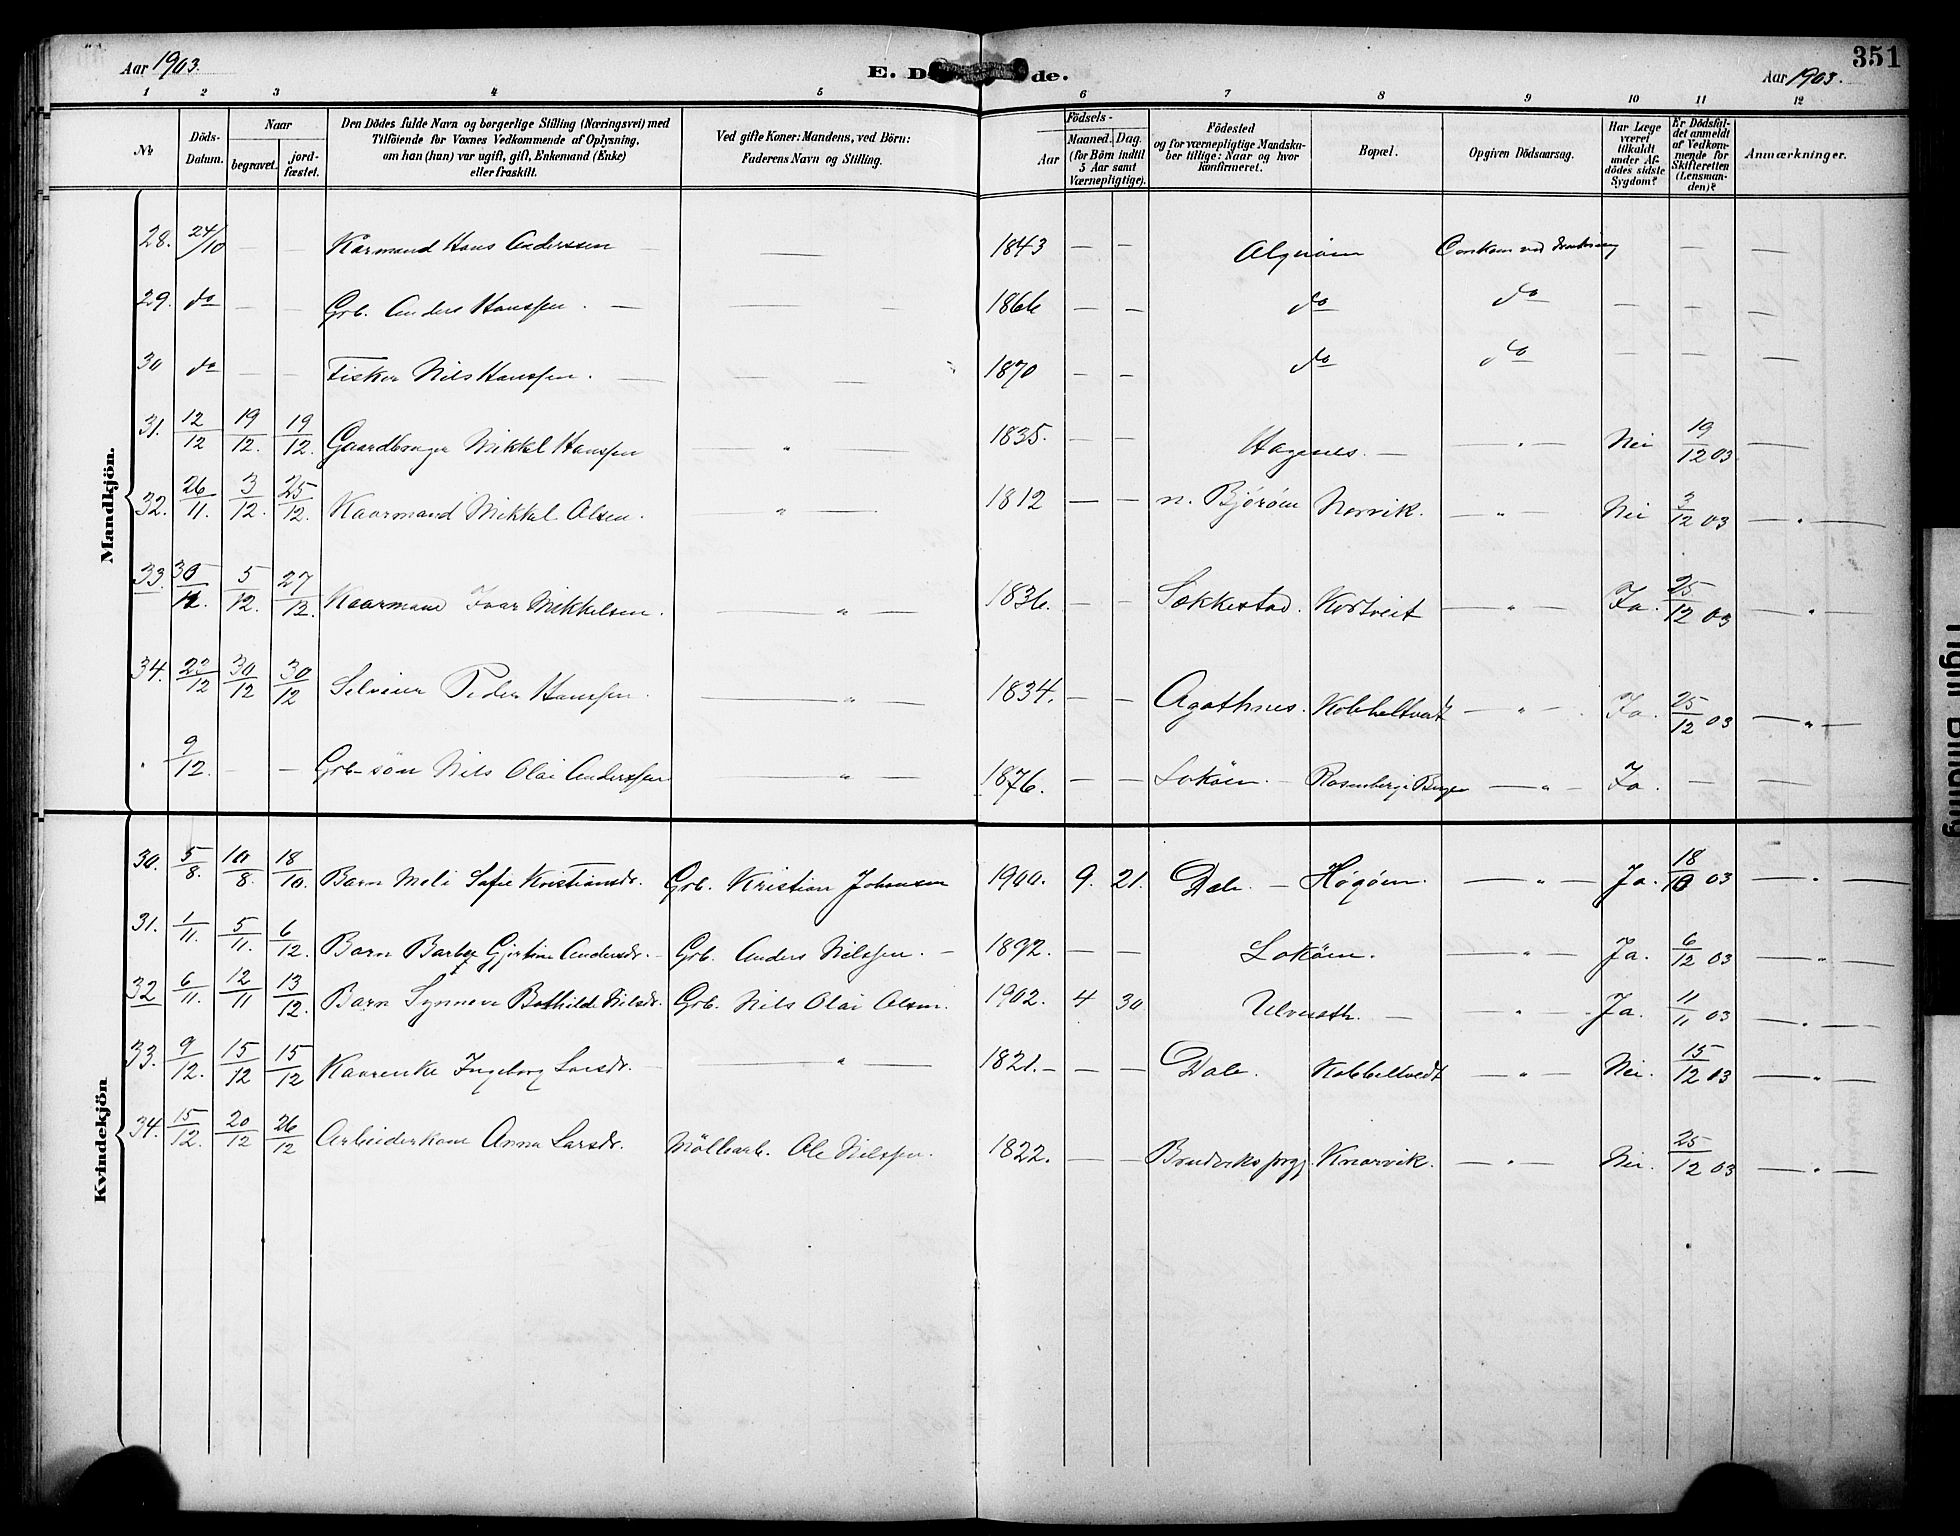 Aar 1903.
E. D de.
Aar 1903.
351
1 2 3 4 5 6 7 8 9 10 11 12
No
Döds-Datum.
Naar
begravet.
jord-fæstet.
Den Dödes fulde Navn og borgerlige Stilling (Næringsvei) med Tilföiende for Voxnes Vedkommende af Oplysning, om han (hun) var ugift, gift, Enkemand (Enke) eller fraskilt.
Ved gifte Koner: Mandens, ved Börn: Faderens Navn og Stilling.
Födsels-
Aar
Maaned. Dag.
(for Börn indtil 5 Aar samt Værnepligtige).
Födested og for værnepligtige Mandska-ber tillige: Naar og hvor konfirmeret.
Bopæl.
Opgiven Dödsaarsag.
Har Læge været tilkaldt under Af-dödes sidste Sygdom?
Er Dödsfal-det anmeldt af Vedkom-mende for Skifteretten (Lensman-den)?
Anmærkninger.
Mandkjön.
28. 24/10 — — Karmand Hans Anderssen — — 1843 — — Algröen Omkom ved — —
29. do — — Grb. Anders Hanssen. — — 1866 — — do do — — —
30 do — — Fisker Nils Hanssen. — — 1870 — — do do — — —
31. 12/12 19/12. 19/12. Gaardbruger Mikkel Hanssen — " — 1835. — — Hagenes. — " — Nei 19/12 03 —
32. 26/11. 3/12. 25/12. Kaarmand Mikkel Olsen. — " — 1812 — — n. Björöen Norvik. — " — Nei 3/12 03 — " —
33. 30/11. 5/12. 27/12. Kaarmand Ivar Mikkelsen. — " — 1836. — — Sekkestad. Kortveit — " — Ja. 25/12 03 — "
34. 23/12 30/12 30/12 Selveier Peder Hanssen. — " — 1834. — — Agothnes. Kobbeltvedt — " — Ja. 25/12 03 — " —
" 9/12. — — Grb-sön Nils Olai Anderssen — " — 1876. — — Loköen. — Rosenberg i Bergen — " — Ja. — —
Kvindekjön
30. 5/8. 10/8. 18/10. Barn Meli Sofie Kristiansdr. Grb. Kristian Johansen 1900. 9. 21. Dale. — Högöen. — " — Ja. 18/10 03 — " —
31. 1/11. 5/11. 6/12. Barn Barbra Gjertine Andersdr. — Grb. Anders Nilssen. — 1892. — — Loköen. — " — Ja. 6/12 03 — " —
32 6/11. 12/11 13/12. Barn Synneve Bothilde Nilsdr. Grb. Nils Olai Olsen. 1902. 4 30 Ulvesæth. — " — Ja. 11/11 03 — " —
33. 9/12. 15/12 15/12 Kaarenke Ingeborg Larsdr. — " — 1821. — — Dale. Kobbeltvedt — " — Nei. 15/12 03 — " —
34. 15/12. 20/12 26/12 Arbeiderkone Anna Larsdr. Möllearb. Ole Nilssen. 1822. — — Knarvik. — " — Nei. 25/12 03 — " —